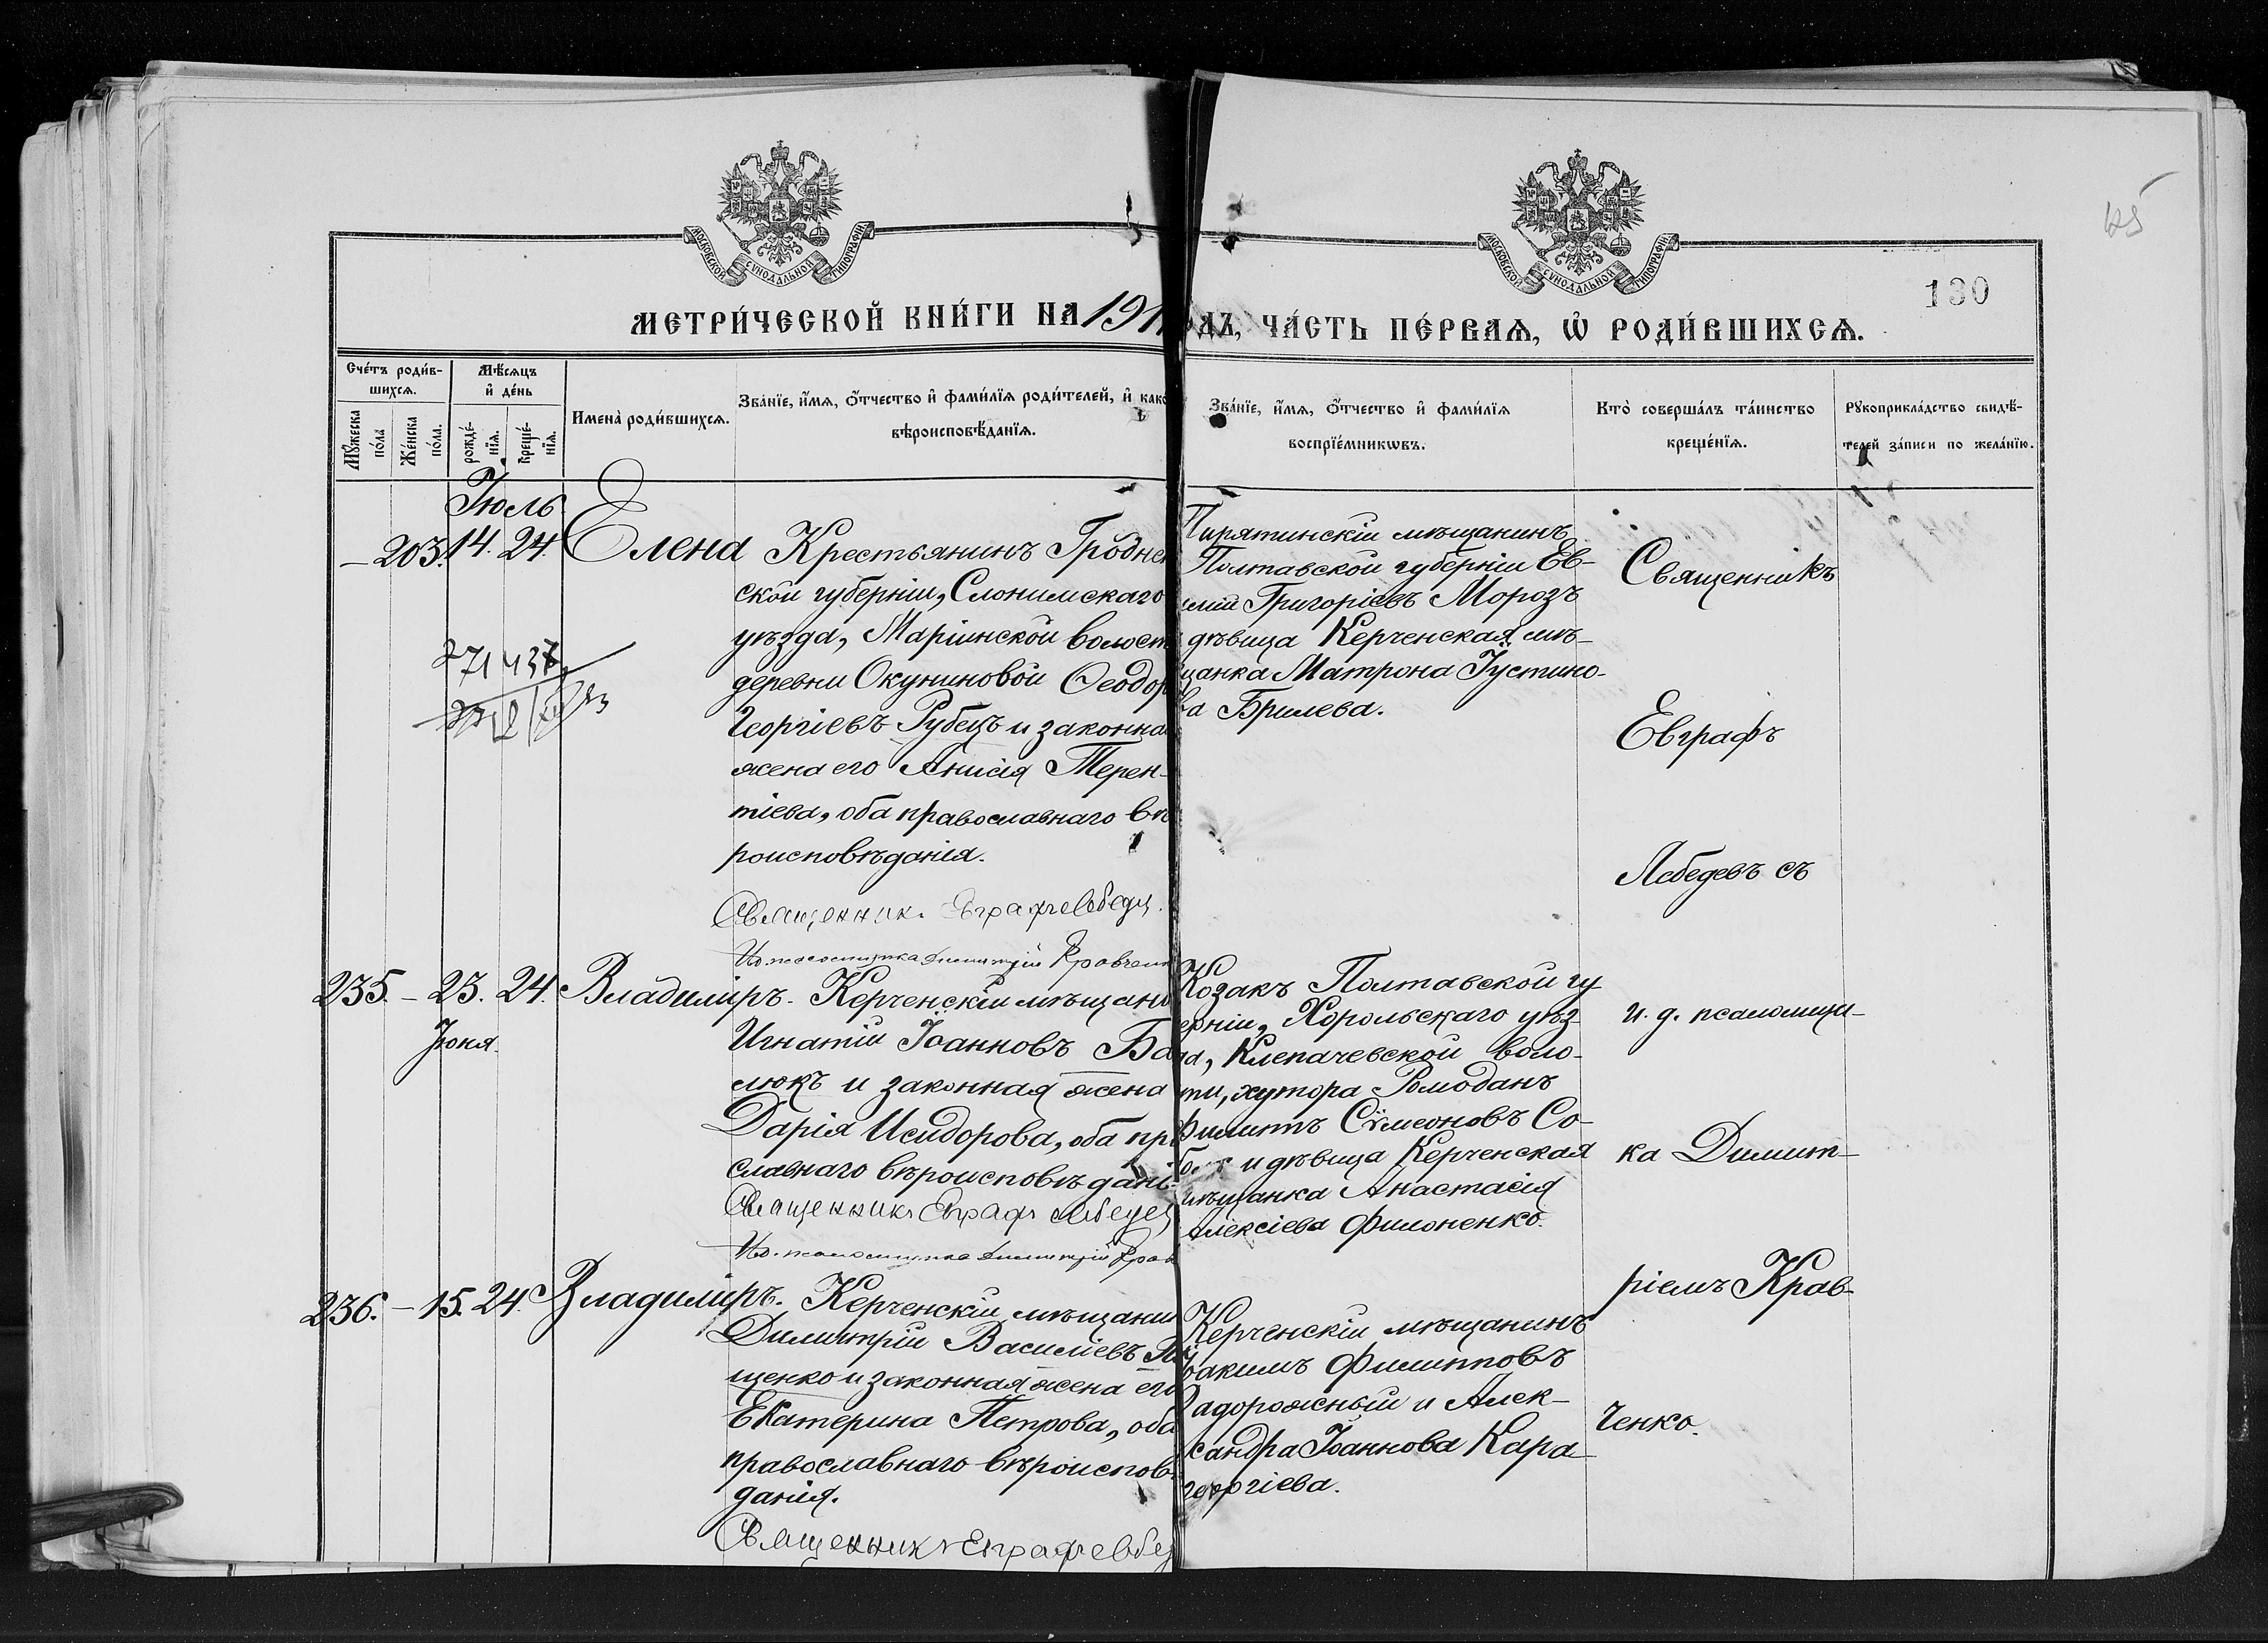 МОСКОВСКОЙ СУНОДАЛЬНОЙ ТИПОГРАФІИ
МОСКОВСКОЙ СУНОДАЛЬНОЙ ТИПОГРАФІИ
125
130
МЕТРИ́ЧЕСКОЙ КНИ́ГИ НА 191
ДЪ, ЧА́СТЬ ПЕ́РВАѦ, Ѡ РОДИ́ВШИХСѦ.
Сче́тъ роди́в-
шихсѧ.
Мꙋжеска по́ла
Же́нска по́ла.
Мѣ́сѧцъ
и҆ де́нь
рожде́-
нїѧ.
креще́-
нїѧ.
Имена̀ роди́вшихсѧ.
Зва́нїе, и҆́мѧ, ѻ҆́тчество и҆ фами́лїѧ роди́телей, и҆ как
вѣроисповѣ́данїѧ.
Зва́нїе, и҆́мѧ, ѻ҆́тчество и҆ фами́лїѧ
воспрїе́мникѡвъ.
Кто̀ соверша́лъ та́инство
креще́нїѧ.
Рꙋкоприкла́дство свидѣ́-
телей за́писи по жела́нїю.
Іюль
– 203. 14. 24. Елена Крестьянинъ Гродне
ской губерніи, Слонимскаго
уѣзда, Маріинской волост
деревни Окуниновой Ѳеодор
Георгіевъ Рубецъ и законна
жена его Анисія Терен-
тіева, оба православнаго вѣ
роисповѣданія.
Священник Евграфъ Лебедев
Ио. псаломщика Димитрій Кравчен
Пирятинскій мѣщанинъ
Полтавской губерніи Ев-
имій Григоріевъ Морозъ
дѣвица Керченская мѣ-
щанка Матрона Іустино-
ва Брилева.
Священникъ
Евграфъ
Лебедевъ съ
и. д. псаломщи-
ка Димит-
ріемъ Крав-
ченко.
235. – 23. 24. Владиміръ. Керченскій мѣщани
Іюня.
Игнатій Іоанновъ Ба
люкъ и законная жена
Дарія Исидорова, оба пр
славнаго вѣроисповѣдані
Священникъ Евграфъ Лебедев
Ио. псаломщика Димитрій Крав
Козакъ Полтавской гу
ерніи, Хорольскаго уѣз
да, Клепачевской воло-
ти, хутора Ромоданъ
Филиппъ Сѵмеоновъ Со-
и дѣвица Керченская
мѣщанка Анастасія
Алексіева Филоненко.
236. – 15. 24. Владиміръ. Керченскій мѣщани
Димитрій Василіевъ
щенко и законная жена его
Екатерина Петрова, оба
православнаго вѣроисповѣ
данія.
Священникъ Евграфъ Лебед
Керченскій мѣщанинъ
Іоакимъ Филипповъ
Задорожный и Алек-
сандра Іоаннова Кара-
георгіева.